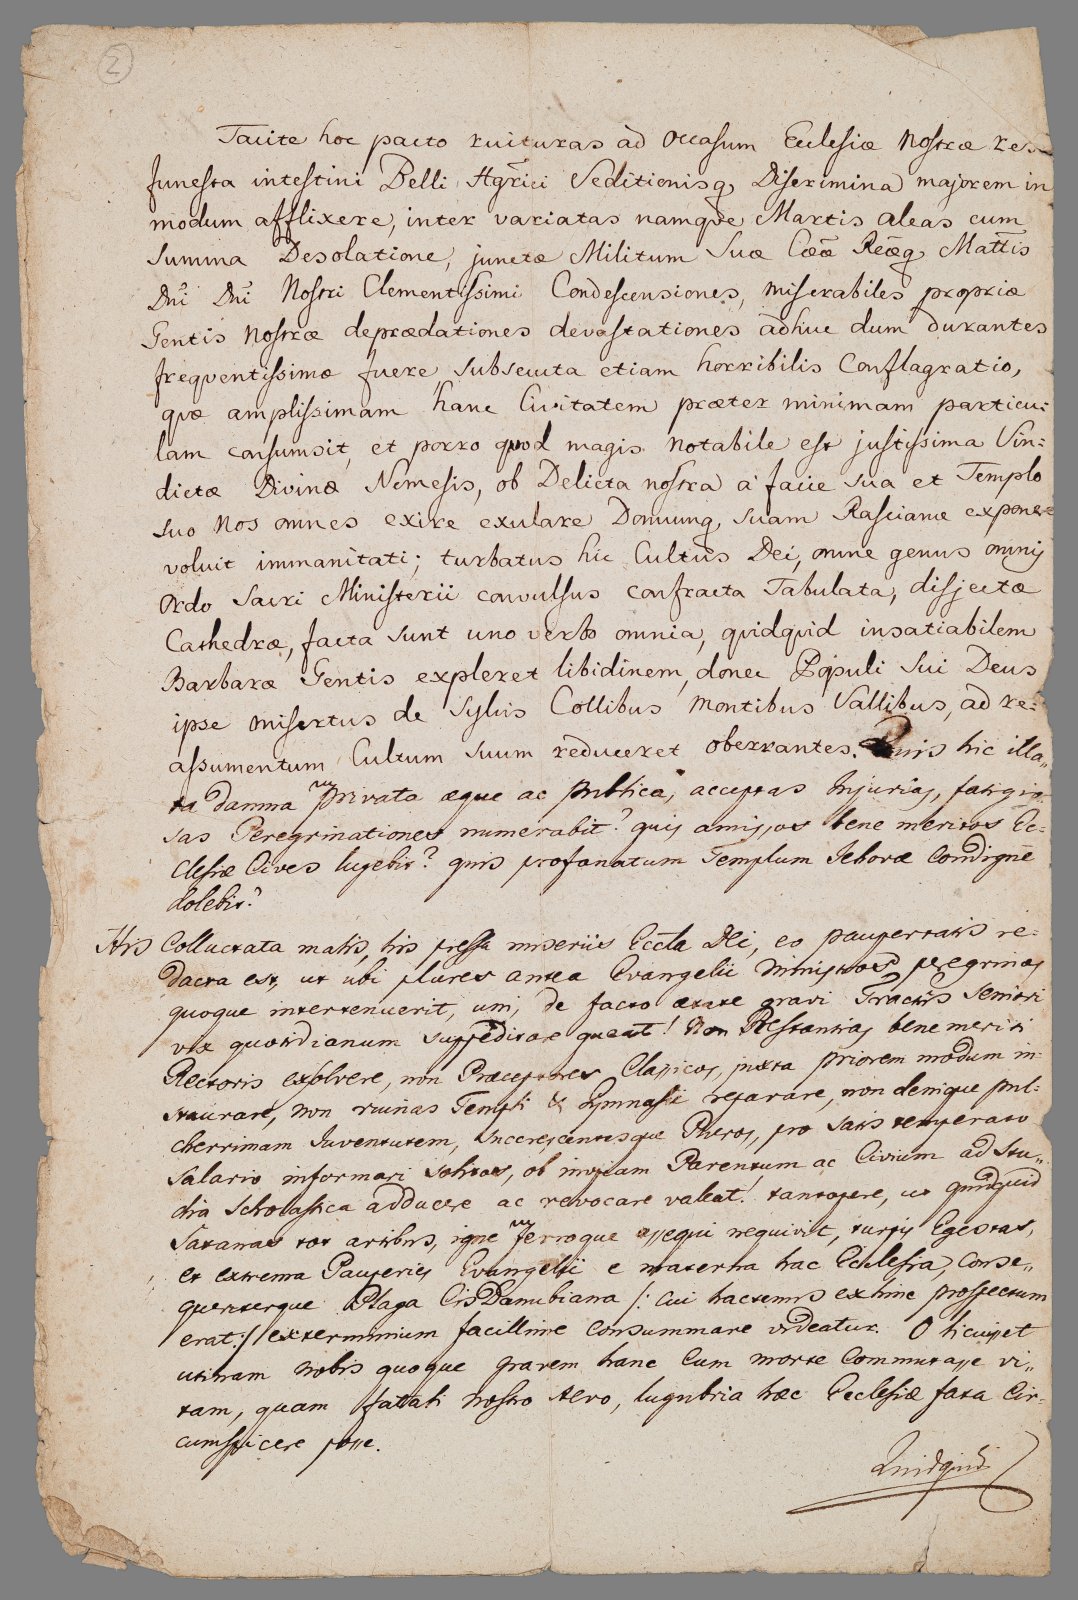 2
Tacite hoc pacto ruituras ad occasum Ecclesiæ nostræ res
funesta intestini Belli Hgrici Seditionisq, Discrimina majorem in
modum afflixere, inter variatas namqve Martis aleas cum
summa Desolatione, junctæ Militum Suæ Cææ Reæq Mattis
Dni Dni Nostri Clementissimi Condescensiones, miserabiles propriæ
Gentis nostræ deprædationes devastationes adhuc dum durantes
freqventissimæ fuere subsecuta etiam horribilis Conflagratio,
qvæ amplissimam hanc Civitatem præter minimam particu:
lam consumsit, et porro qvod magis notabile est justissima Vin:
dictæ Divinæ Nemesis, ob Delicta nostra a facie sua et Templo
suo nos omnes exire exulare Domumq, suam Rascianæ exponere
voluit immanitati; turbatus hic Cultus Dei, omne genus omnis
Ordo Sacri Ministerii convulsus confracta Tabulata, disjectæ
Cathedræ, facta sunt uno verbo omnia, qvidqvid insatiabilem
Barbaræ Gentis expleret libidinem, donec Populi sui Deus
ipse misertus de Sylvis Collibus Montibus Vallibus, ad re:
assumentum Cultum suum reduceret oberrantes. Quis hic illa„
ta damna privata æque ac publica, acceptas Injurias,
sas Peregrinationes numerabit? quis amissos bene meritos Ec:
clesiæ Cives lugebit? quis profanatum Templum Jehovæ Condigne
dolebit?
His Colluctata malis, his pressa miseriis Eccla Dei, eo paupertatis re:
dacta est, ut ubi plures antea Evangelii Ministros peregrinos
quoque intertenuerit, uni, de facto ætate gravi Seniori
vix quotidianum suppeditare queat! Non Restantias bene meriti
Rectoris exsolvere, non Præceptores Classicos, juxta priorem modum in:
staurare, non ruinas Templi & Gymnasii reparare, non denique pul:
cherrimam Juventutem, Succrescentesque Pueros, pro satis temperato
salario informari solitos, ob inopiam Parentum ac Civium ad Stu„
dia Scholastica adducere ac revocare valeat. tantopere, ut quidquid
Satanas tot artibus, igne ferroque assequi nequivit, turpis Egestas,
et extrema Pauperies Evangelii e materna hac Ecclesia, Conse„
quenterque Plaga Cis Danubiana /: cui hactenus ex hinc prospectum
erat:/ exterminium facillime Consummare videatur. O licuisset
utinam nobis quoque gravem hanc Cum morte Commutasse vi„
tam, quam fatali nostro Aevo, lugubria hæc Ecclesiæ fata Cir:
cumspicere posse.
Quidquid